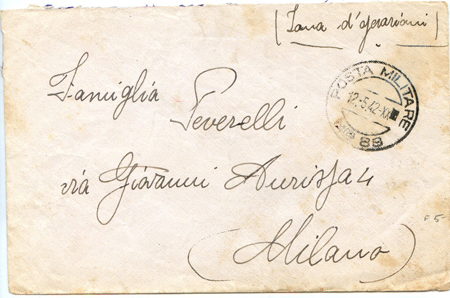 (Zona d'operazioni)
POSTA MILITARE
12.5.42-XX
88
Famiglia
Peverelli
via Giovanni Aurispa 4
(Milano)
F 5-